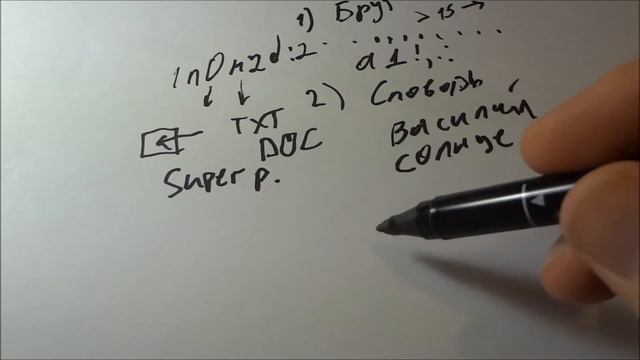 1) Брут > 15 →
1n0m2d:2 . . . . . . . . . .
a 1 ! , : .
2) Словарь
TXT
DOC
Василий
солнце
Super p.